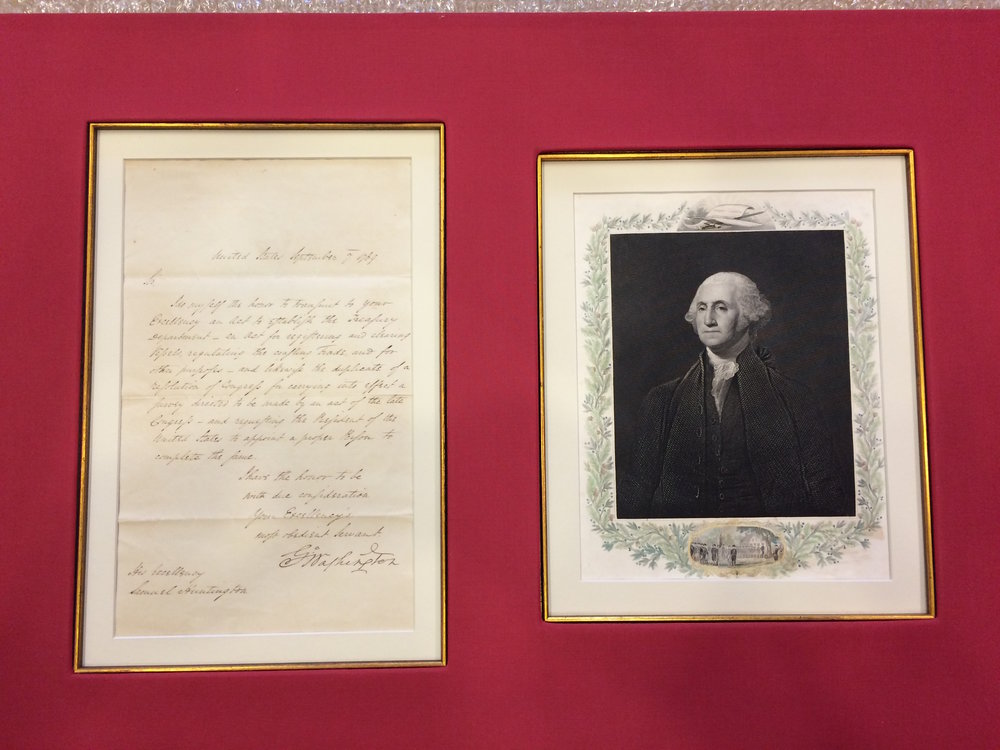 United States September 1789
Sir
I do myself the honor to transmit to your
Excellency an Act to establish the Treasury
Department — an Act for registering and clearing
Vessels, regulating the coasting Trade, and for
other purposes — and likewise the duplicate of a
resolution of Congress for carrying into effect a
survey directed to be made by an act of the late
Congress — and requesting the President of the
United States to appoint a proper Person to
complete the same.
I have the honor to be
with due consideration
Your Excellency's
most obedient Servant
Go Washington
His Excellency
Samuel Huntington